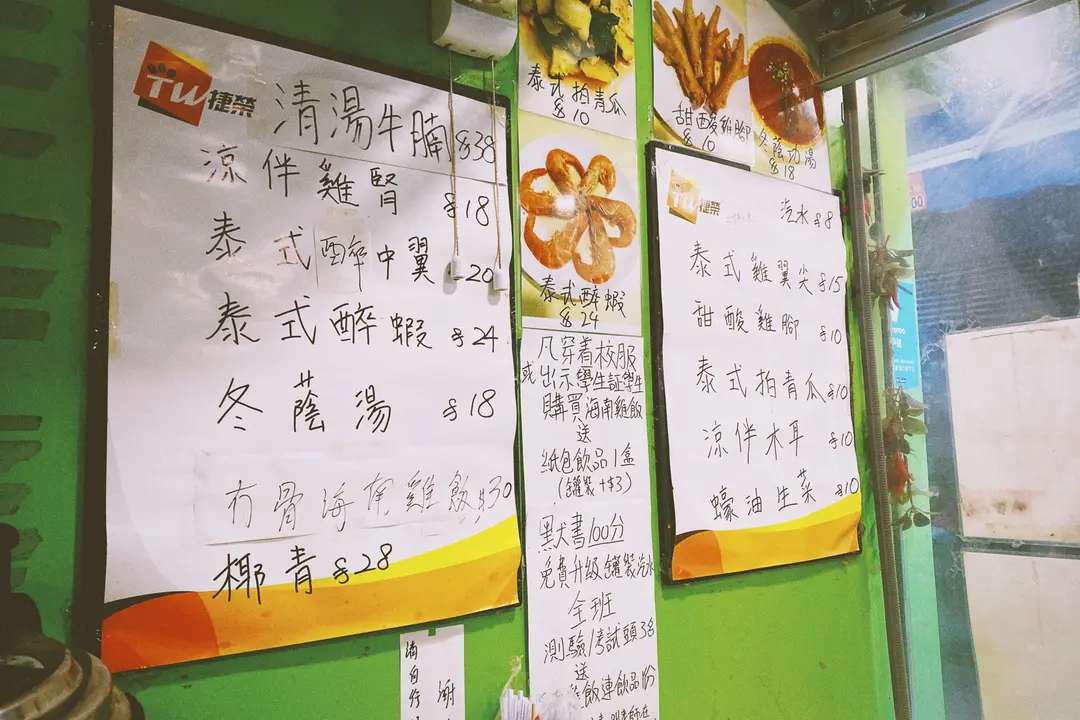 TW捷榮
清湯牛腩 $38
涼伴雞腎 $18
泰式醉中翼 20
泰式醉蝦 $24
冬蔭湯 $18
冇骨海南雞飯 $30
椰青 $28
泰式拍青瓜
$10
泰式醉蝦
$24
凡穿着校服
或出示學生証學生
購買海南雞飯
送
紙包飲品1盒
(罐裝+$3)
默書100分
免費升級罐裝汽水
全班
測驗/考試頭3名
送
飯連飲品1份
甜酸雞腳
$10
冬蔭功湯
$18
TW捷榮
汽水 $8
泰式雞翼尖 $15
甜酸雞腳 $10
泰式拍青瓜 $10
涼伴木耳 $10
蠔油生菜 $10
請自行
謝